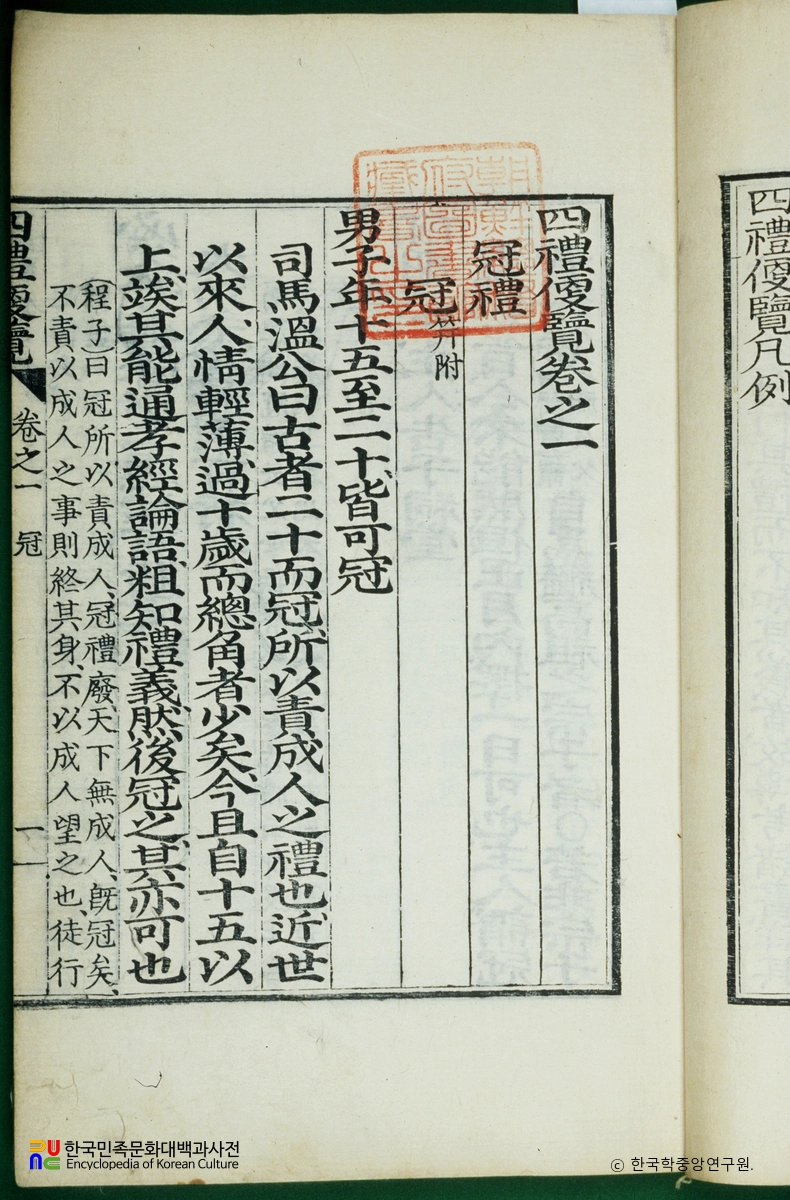 四禮便覽凡例
四禮便覽卷之一
冠禮
冠 笄附
男子年十五至二十皆可冠
司馬溫公曰古者二十而冠、所以責成人之禮也近世
以來人情輕薄過十歲而總角者少矣今且自十五以
上竢其能通孝經論語粗知禮義然後冠之其亦可也
(程子)曰冠所以責成人、冠禮廢、天下無成人、旣冠矣、
不責以成人之事則終其身、不以成人望之也、徒行
四禮便覽 卷之一 冠 一
한국민족문화대백과사전
Encyclopedia of Korean Culture
ⓒ 한국학중앙연구원.